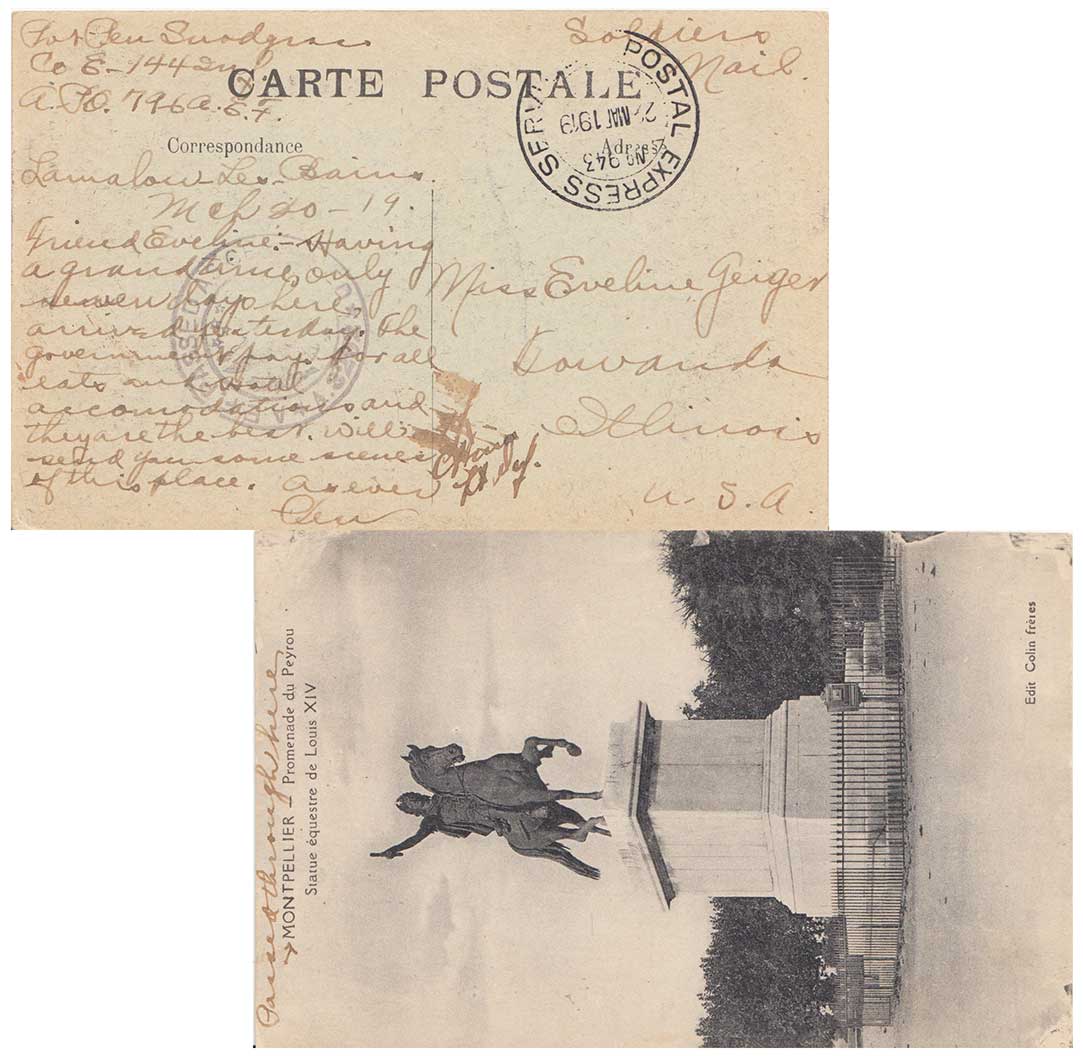 Pvt Pen Snodgrass
Co E-144 Inf
A.P.O. 796 A.E.F.
Soldiers
Mail.
CARTE POSTALE
Correspondance
Adresse
POSTAL EXPRESS SERV
MAR 1919
No 943
Lamalow-Les-Bains.
Mch 20-19.
Friend Eveline:- Having
a grand time, only
seven days here,
arrived yesterday. The
government pays for all
eats and hotel
accomodations and
they are the best. Will
send you some scenes
of this place. As ever
Pen
A.E.F. PASSED
Miss Eveline Geiger
Towanda
Illinois
U. S. A.
Passed through here
MONTPELLIER — Promenade du Peyrou
Statue équestre de Louis XIV
Edit Colin frères